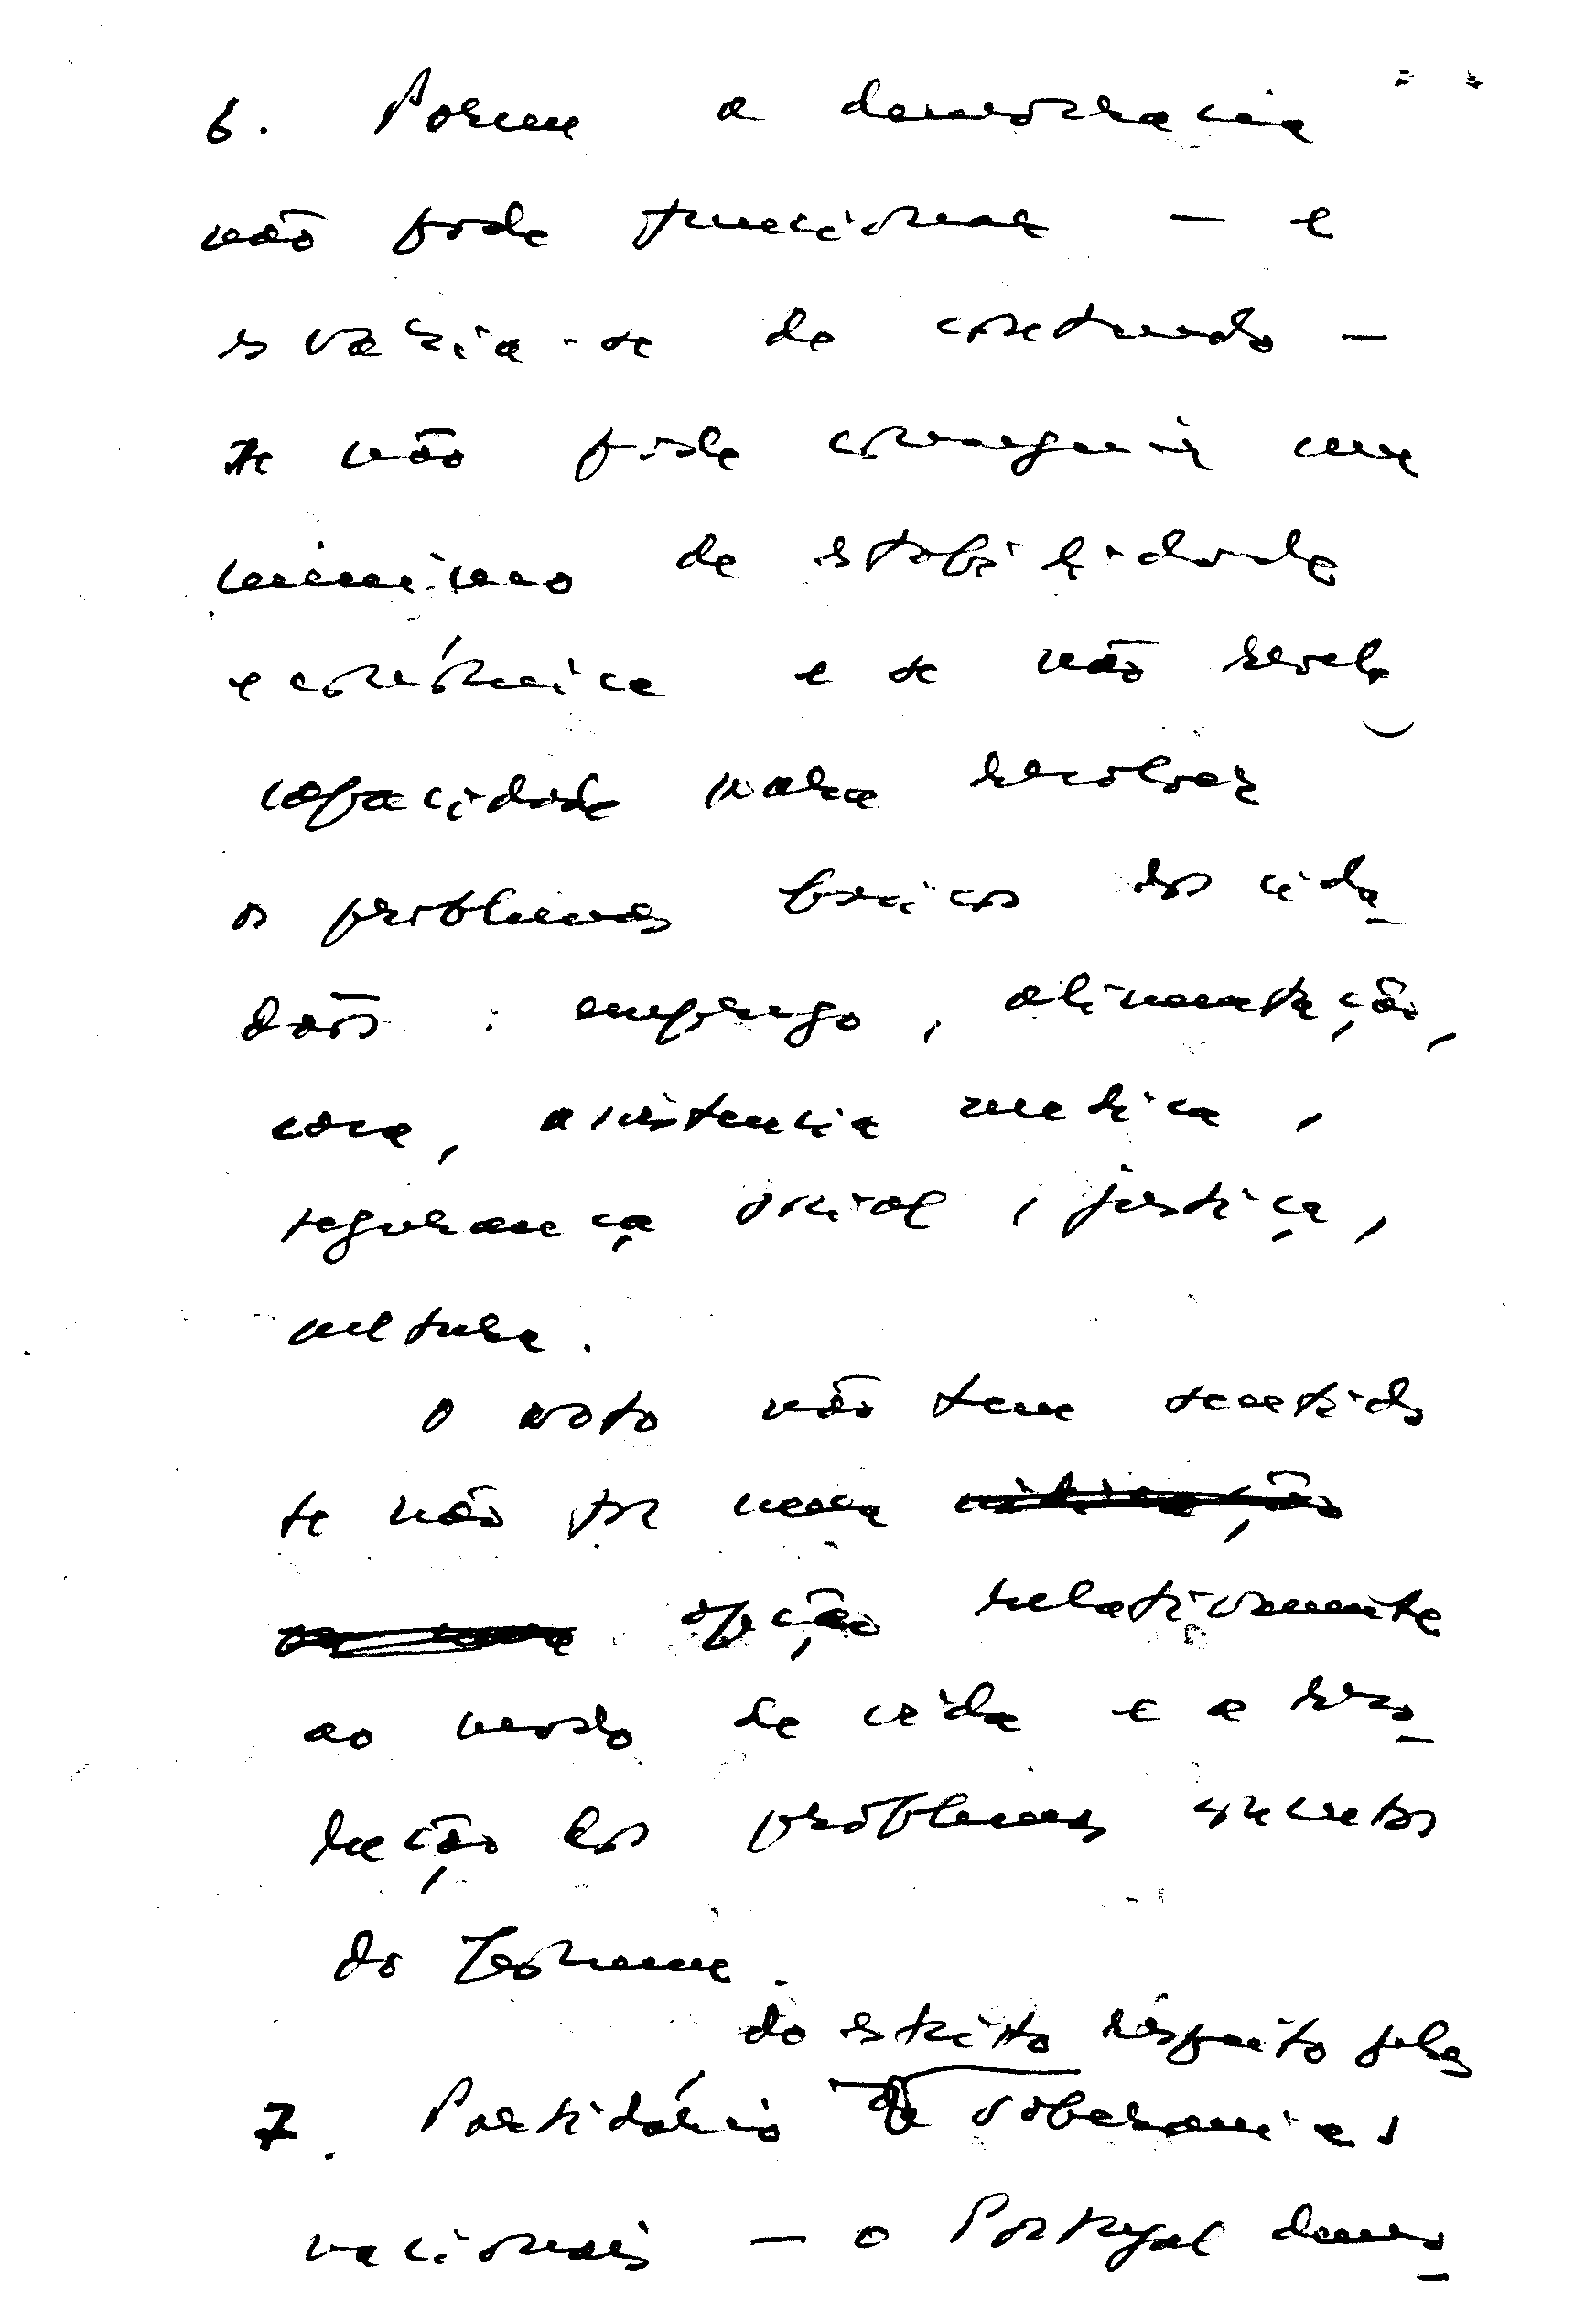 6. Porem a democracia
não pode funcionar — e
esvazia-se de conteudo —
se não pode conseguir um
minimo de estabilidade
económica e se não revela
capacidade para resolver
os problemas basicos dos cida-
dãos : emprego, alimentação,
casa, assistencia medica,
segurança social, justiça,
cultura.
O voto não tem sentido
se não for uma
opção relativamente
ao modo de vida e a reso-
lução dos problemas concretos
do homem.
do estrito respeito pelas
7. Partidário soberanias
nacionais — o Portugal demo-